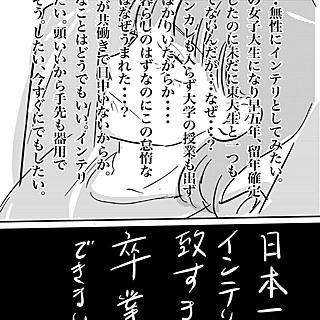 ・無性にインテリとしてみたい。
の女子大生になり早五年、留年確定
したのに未だに東大生と一つも
てないんだが…なぜ…?
ンカレも入らず大学の授業も出ず
ばかりいたからか……
暮らしのはずなのにこの怠惰な
はなぜうまれた…?
が共働きで日中いないからか。
なことはどうでもいい。インテリ
たい。頭いいから手先も器用で
そう。したい、今すぐにでもしたい。
日本一
インテリ
致すま
卒業
できま